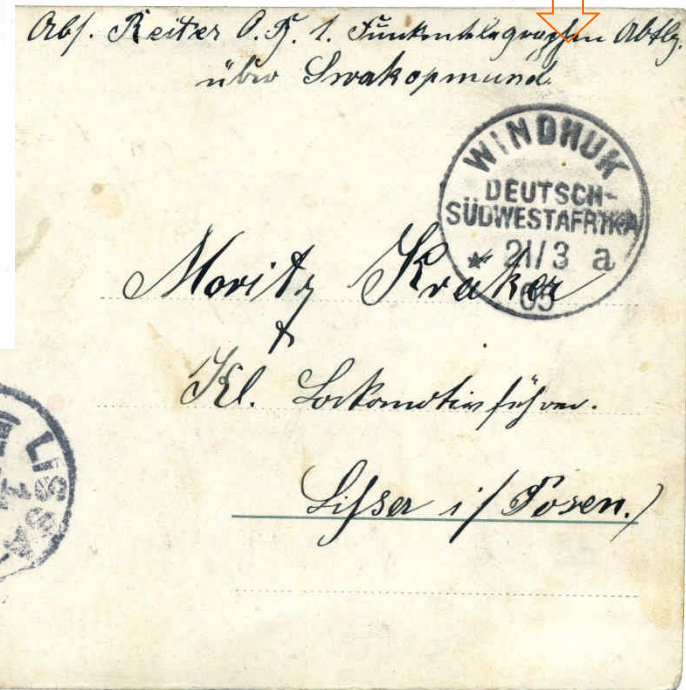 Abs. Reiter O. K. 1. Funkentelegraphen Abtlg.
über Swakopmund
WINDHUK
DEUTSCH-
SÜDWESTAFRIKA
* 21/3 a
05
Moritz Kräker
Kl. Lockomotivführer.
Lissa i/Posen.)
LISSA